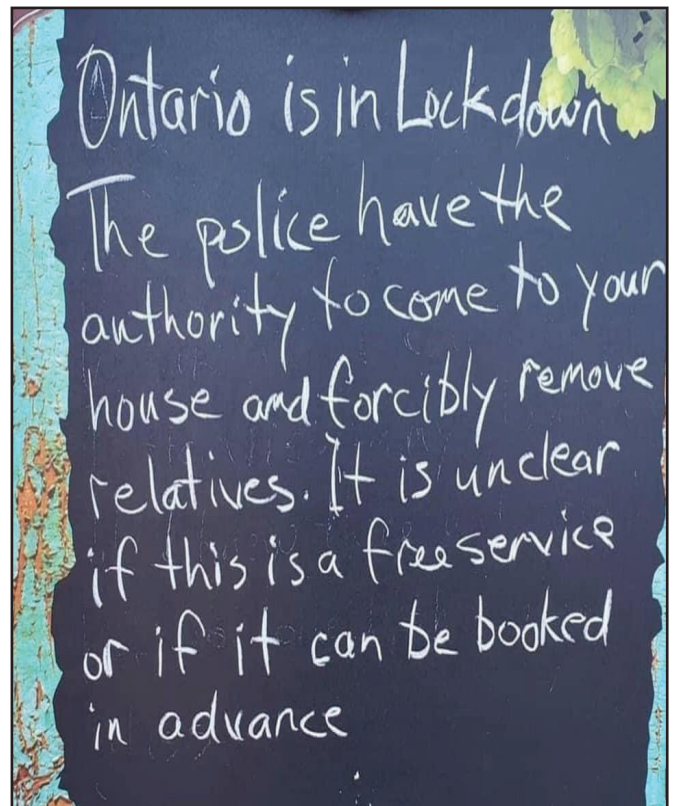 Ontario is in Lockdown
The police have the
authority to come to your
house and forcibly remove
relatives. It is unclear
if this is a free service
or if it can be booked
in advance